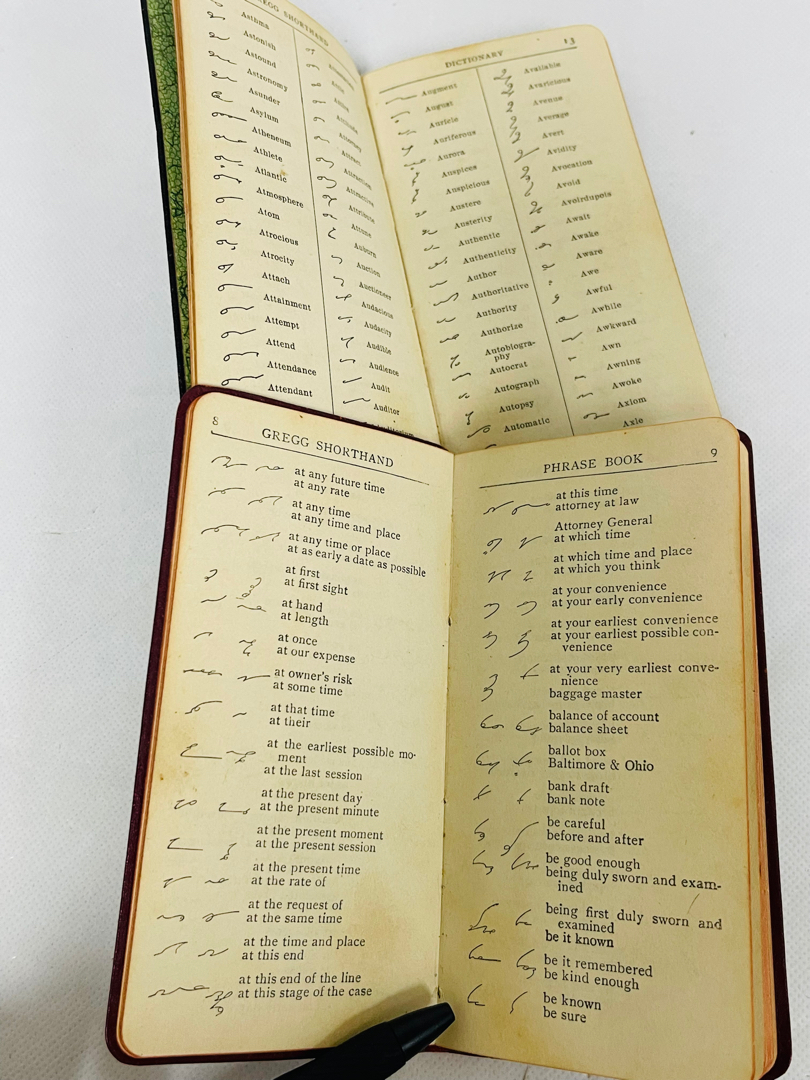 GREGG SHORTHAND
Asthma
Astonish
Astound
Astronomy
Asunder
Asylum
Atheneum
Athlete
Atlantic
Atmosphere
Atom
Atrocious
Atrocity
Attach
Attainment
Attempt
Attend
Attendance
Attendant
Attract
Attraction
Attractive
Attune
Auburn
Auction
Auctioneer
Audacious
Audacity
Audible
Audience
Audit
Auditor
DICTIONARY
13
Augment
August
Auricle
Auriferous
Aurora
Auspices
Auspicious
Austere
Austerity
Authentic
Authenticity
Author
Authoritative
Authority
Authorize
Autobiogra-
phy
Autocrat
Autograph
Autopsy
Automatic
Available
Avaricious
Avenue
Average
Avert
Avidity
Avocation
Avoid
Avoirdupois
Await
Awake
Aware
Awe
Awful
Awhile
Awkward
Awn
Awning
Awoke
Axiom
Axle
8
GREGG SHORTHAND
at any future time
at any rate
at any time
at any time and place
at any time or place
at as early a date as possible
at first
at first sight
at hand
at length
at once
at our expense
at owner's risk
at some time
at that time
at their
at the earliest possible mo-
ment
at the last session
at the present day
at the present minute
at the present moment
at the present session
at the present time
at the rate of
at the request of
at the same time
at the time and place
at this end
at this end of the line
at this stage of the case
PHRASE BOOK
9
at this time
attorney at law
Attorney General
at which time
at which time and place
at which you think
at your convenience
at your early convenience
at your earliest convenience
at your earliest possible con-
venience
at your very earliest conve-
nience
baggage master
balance of account
balance sheet
ballot box
Baltimore & Ohio
bank draft
bank note
be careful
before and after
be good enough
being duly sworn and exam-
ined
being first duly sworn and
examined
be it known
be it remembered
be kind enough
be known
be sure